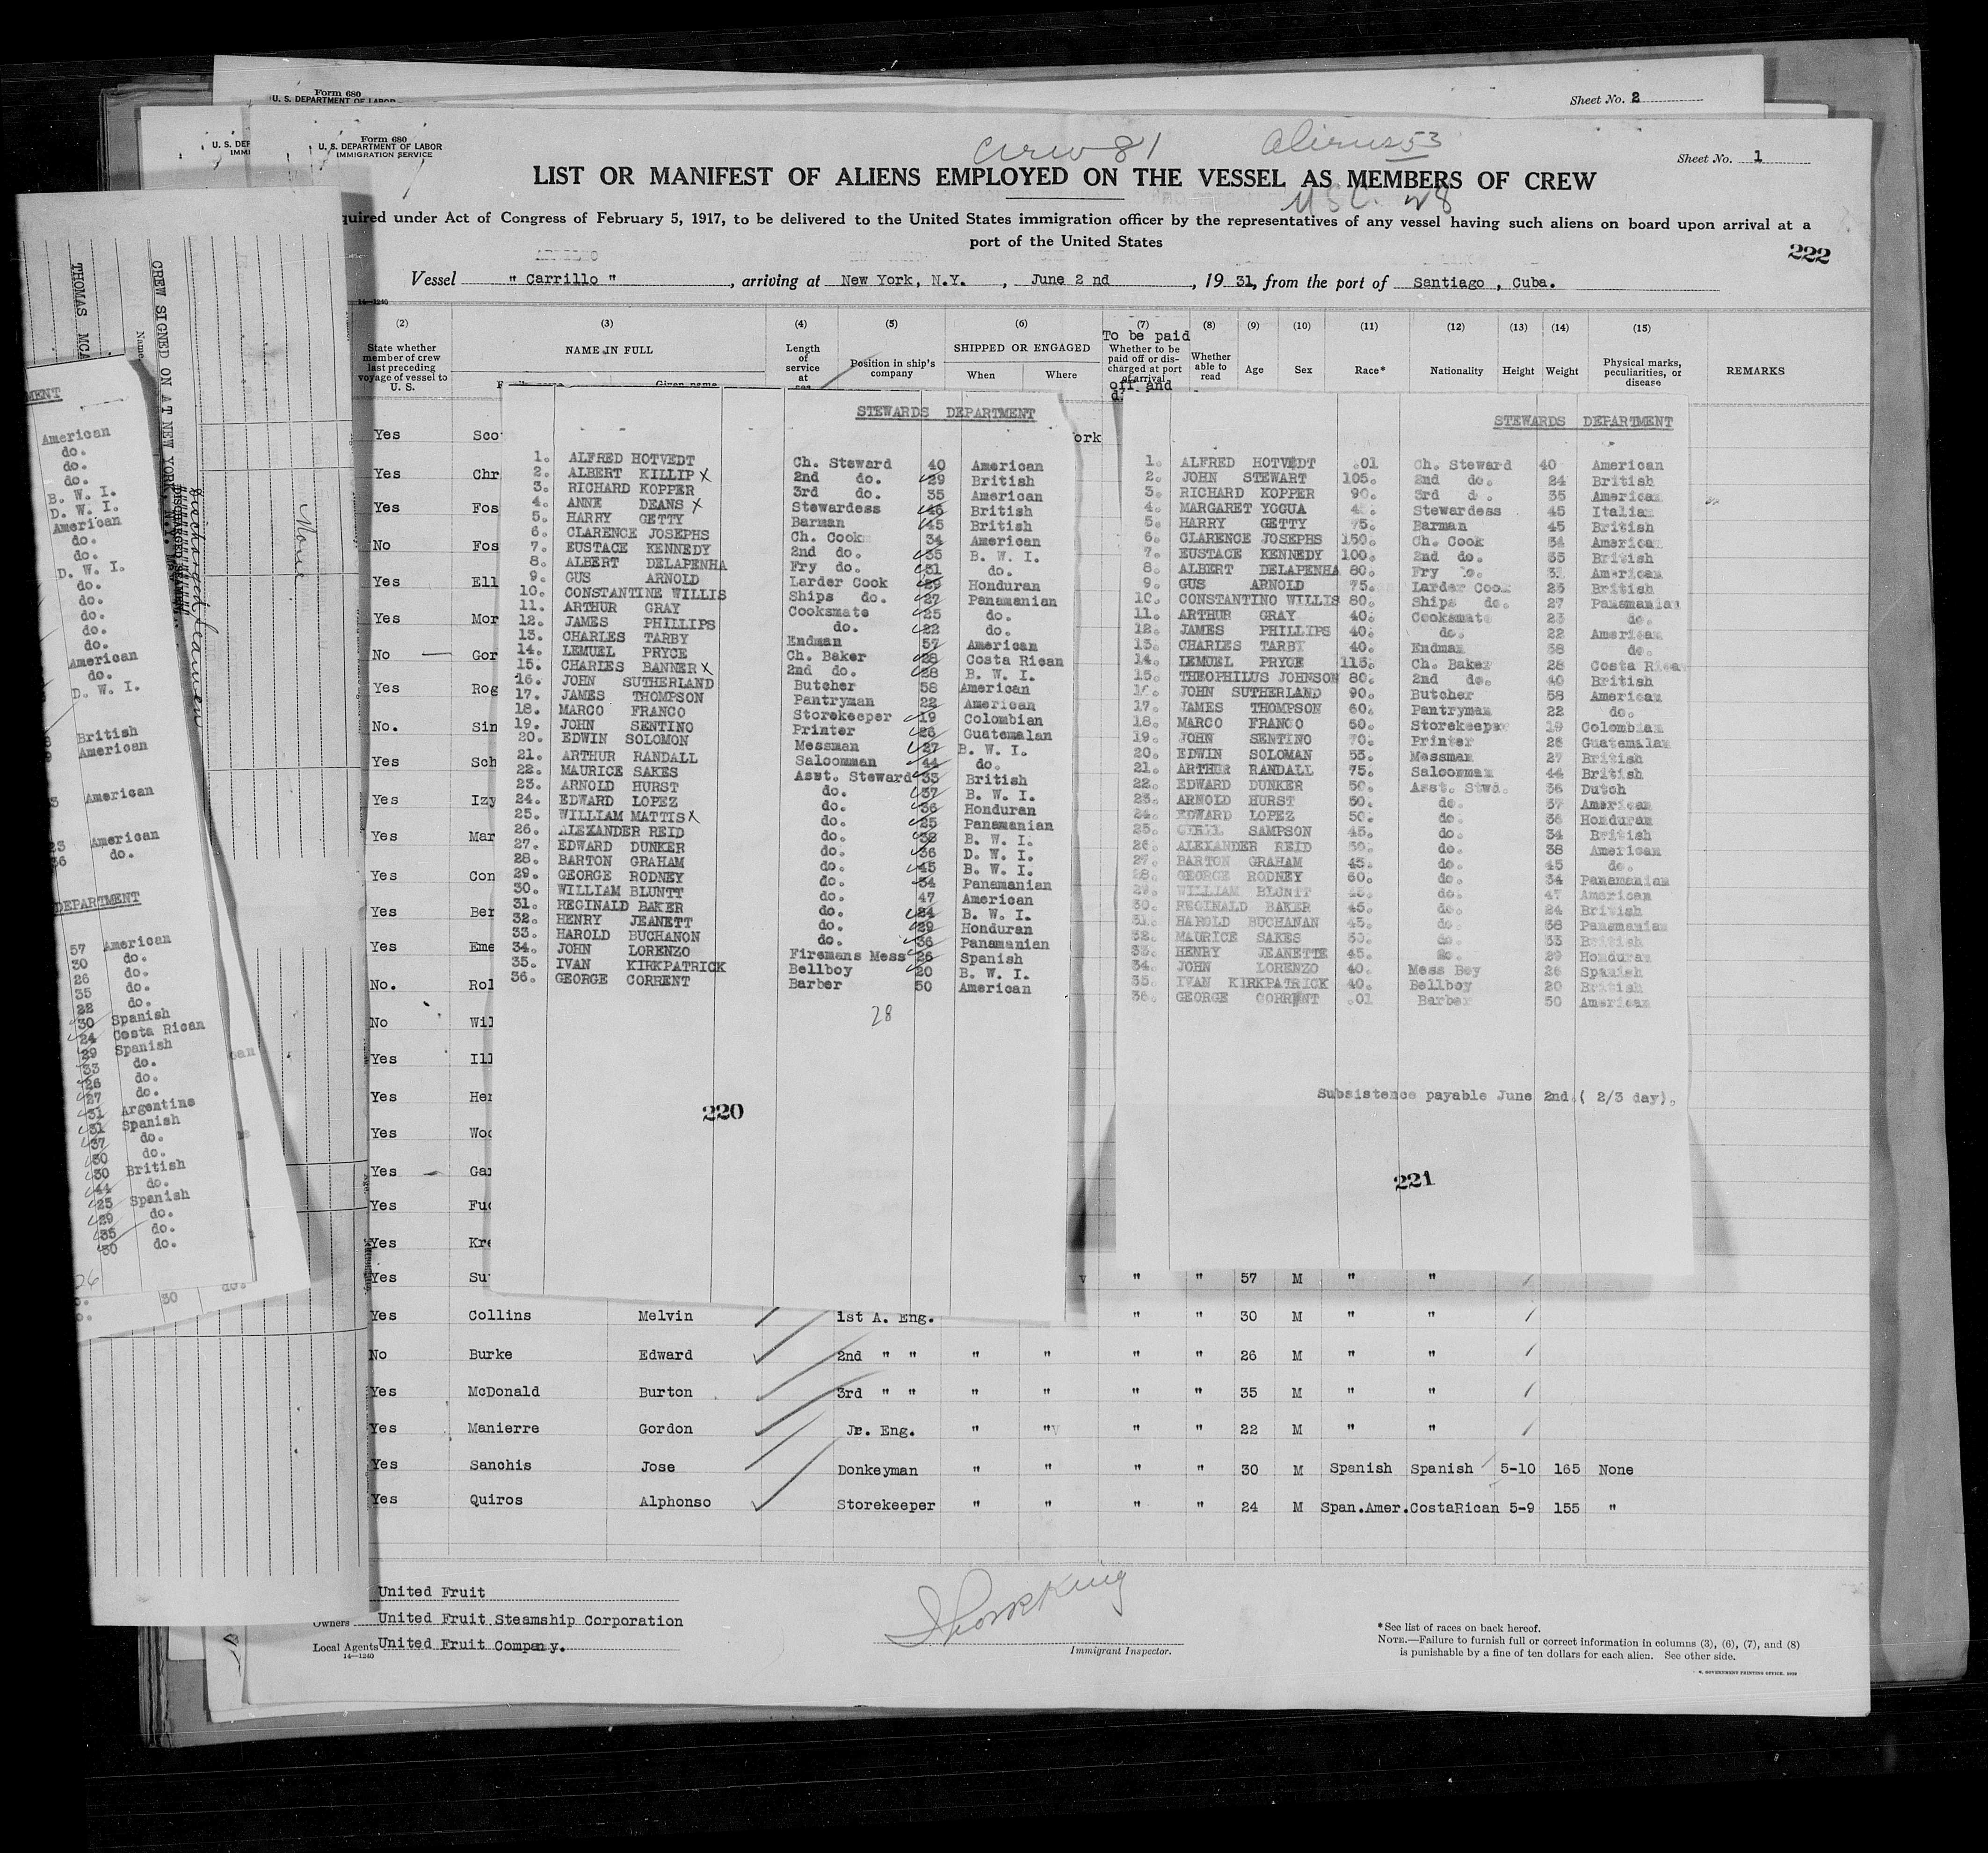 Form 680
U. S. DEPARTMENT OF LABOR
Sheet No. 2
Form 680
U. S. DEPARTMENT OF LABOR
IMMIGRATION SERVICE
U. S. DEP
IMMI
Crew 81
Aliens 53
Sheet No. 1
LIST OR MANIFEST OF ALIENS EMPLOYED ON THE VESSEL AS MEMBERS OF CREW
USC. 28
quired under Act of Congress of February 5, 1917, to be delivered to the United States immigration officer by the representatives of any vessel having such aliens on board upon arrival at a
port of the United States
222
Vessel " Carrillo ", arriving at New York, N.Y. , June 2 nd , 19 31, from the port of Santiago , Cuba.
14—1240
(2) (3) (4) (5) (6) (7) (8) (9) (10) (11) (12) (13) (14) (15)
State whether member of crew last preceding voyage of vessel to U. S.
NAME IN FULL
Given name
Length of service at sea
Position in ship's company
SHIPPED OR ENGAGED
When Where
To be paid
Whether to be paid off or discharged at port of arrival
off and
Whether able to read
Age
Sex
Race*
Nationality
Height
Weight
Physical marks, peculiarities, or disease
REMARKS
Yes Sco
Yes Chr
Yes Fos
No Fos
Yes Ell
Yes Mor
No Gor
Yes Rog
No. Sin
Yes Sch
Yes Izy
Yes Mar
Yes Con
Yes Ber
Yes Eme
No. Rol
No Wil
Yes Ill
Yes Her
Yes Woo
Yes Ga
Yes Fu
Yes Kre
Yes Su " " 57 M " "
Yes Collins Melvin 1st A. Eng. " " 30 M " "
No Burke Edward 2nd " " " " " " 26 M " "
Yes McDonald Burton 3rd " " " " " " 35 M " "
Yes Manierre Gordon Jr. Eng. " " " " 22 M " "
Yes Sanchis Jose Donkeyman " " " " 30 M Spanish Spanish 5-10 165 None
Yes Quiros Alphonso Storekeeper " " " " 24 M Span.Amer. CostaRican 5-9 155 "
ork
STEWARDS DEPARTMENT
1. ALFRED HOTVEDT Ch. Steward 40 American
2. ALBERT KILLIP X 2nd do. 29 British
3. RICHARD KOPPER 3rd do. 35 American
4. ANNE DEANS X Stewardess 46 British
5. HARRY GETTY Barman 45 British
6. CLARENCE JOSEPHS Ch. Cook 34 American
7. EUSTACE KENNEDY 2nd do. 35 B. W. I.
8. ALBERT DELAPENHA Fry do. 31 do.
9. GUS ARNOLD Larder Cook 29 Honduran
10. CONSTANTINE WILLIS Ships do. 27 Panamanian
11. ARTHUR GRAY Cooksmate 25 do.
12. JAMES PHILLIPS do. 22 do.
13. CHARLES TARBY Endman 57 American
14. LEMUEL PRYCE Ch. Baker 28 Costa Rican
15. CHARLES BANNER X 2nd do. 28 B. W. I.
16. JOHN SUTHERLAND Butcher 58 American
17. JAMES THOMPSON Pantryman 22 American
18. MARCO FRANCO Storekeeper 19 Colombian
19. JOHN SENTINO Printer 26 Guatemalan
20. EDWIN SOLOMON Messman 27 B. W. I.
21. ARTHUR RANDALL Saloonman 44 do.
22. MAURICE SAKES Asst. Steward 33 British
23. ARNOLD HURST do. 37 B. W. I.
24. EDWARD LOPEZ do. 36 Honduran
25. WILLIAM MATTIS X do. 25 Panamanian
26. ALEXANDER REID do. 38 B. W. I.
27. EDWARD DUNKER do. 36 D. W. I.
28. BARTON GRAHAM do. 45 B. W. I.
29. GEORGE RODNEY do. 34 Panamanian
30. WILLIAM BLUNTT do. 47 American
31. REGINALD BAKER do. 24 B. W. I.
32. HENRY JEANETT do. 29 Honduran
33. HAROLD BUCHANON do. 36 Panamanian
34. JOHN LORENZO Firemans Mess 26 Spanish
35. IVAN KIRKPATRICK Bellboy 20 B. W. I.
36. GEORGE CORRENT Barber 50 American
28
220
STEWARDS DEPARTMENT
1. ALFRED HOTVEDT .01 Ch. Steward 40 American
2. JOHN STEWART 105. 2nd do. 24 British
3. RICHARD KOPPER 90. 3rd do. 35 American
4. MARGARET YOGUA Stewardess 45 Italian
5. HARRY GETTY 75. Barman 45 British
6. CLARENCE JOSEPHS 150. Ch. Cook 34 American
7. EUSTACE KENNEDY 100. 2nd do. 35 British
8. ALBERT DELAPENHA 80. Fry do. 31 American
9. GUS ARNOLD 75. Larder Cook 25 British
10. CONSTANTINO WILLIS 80. Ships do. 27 Panamanian
11. ARTHUR GRAY 40. Cooksmate 23 do.
12. JAMES PHILLIPS 40. do. 22 American
13. CHARLES TARBY 40. Endman 58 do.
14. LEMUEL PRYCE 115. Ch. Baker 28 Costa Rica
15. THEOPHILUS JOHNSON 80. 2nd do. 40 British
16. JOHN SUTHERLAND 90. Butcher 58 American
17. JAMES THOMPSON 60. Pantryman 22 do.
18. MARCO FRANCO 50. Storekeeper 19 Colombian
19. JOHN SENTINO 70. Printer 26 Guatemalan
20. EDWIN SOLOMAN 55. Messman 27 British
21. ARTHUR RANDALL 75. Saloonman 44 British
22. EDWARD DUNKER 50. Asst. Stwd. 36 Dutch
23. ARNOLD HURST 50. do. 37 American
24. EDWARD LOPEZ 50. do. 36 Honduran
25. CYRIL SAMPSON 45. do. 34 British
26. ALEXANDER REID 50. do. 38 American
27. BARTON GRAHAM 45. do. 45 do.
28. GEORGE RODNEY 60. do. 34 Panamanian
29. WILLIAM BLUNTT 45. do. 47 American
30. REGINALD BAKER 45. do. 24 British
31. HAROLD BUCHANAN 45. do. 36 Panamanian
32. MAURICE SAKES 50. do. 33 British
33. HENRY JEANETTE 45. do. 29 Honduran
34. JOHN LORENZO 40. Mess Boy 26 Spanish
35. IVAN KIRKPATRICK 40. Bellboy 20 British
36. GEORGE CORRENT .01 Barber 50 American
Subsistence payable June 2nd.( 2/3 day).
221
CREW SIGNED ON AT NEW YORK, N.Y.
Name
THOMAS MCA
DISCHARGED SEAMEN.
Discharged Seamen
None
MENT
American
do.
do.
do.
B. W. I.
D. W. I.
American
do.
do.
D. W. I.
do.
do.
do.
do.
do.
American
do.
D. W. I.
British
American
American
American
36 do.
DEPARTMENT
57 American
30 do.
26 do.
35 do.
22 do.
30 Spanish
24 Costa Rican
29 Spanish
33 do.
26 do.
27 do.
31 Argentine
31 Spanish
37 do.
30 do.
30 British
44 do.
25 Spanish
29 do.
35 do.
30 do.
30 do.
United Fruit
Owners United Fruit Steamship Corporation
Local Agents United Fruit Company.
14—1240
Immigrant Inspector.
*See list of races on back hereof.
NOTE.—Failure to furnish full or correct information in columns (3), (6), (7), and (8)
is punishable by a fine of ten dollars for each alien. See other side.